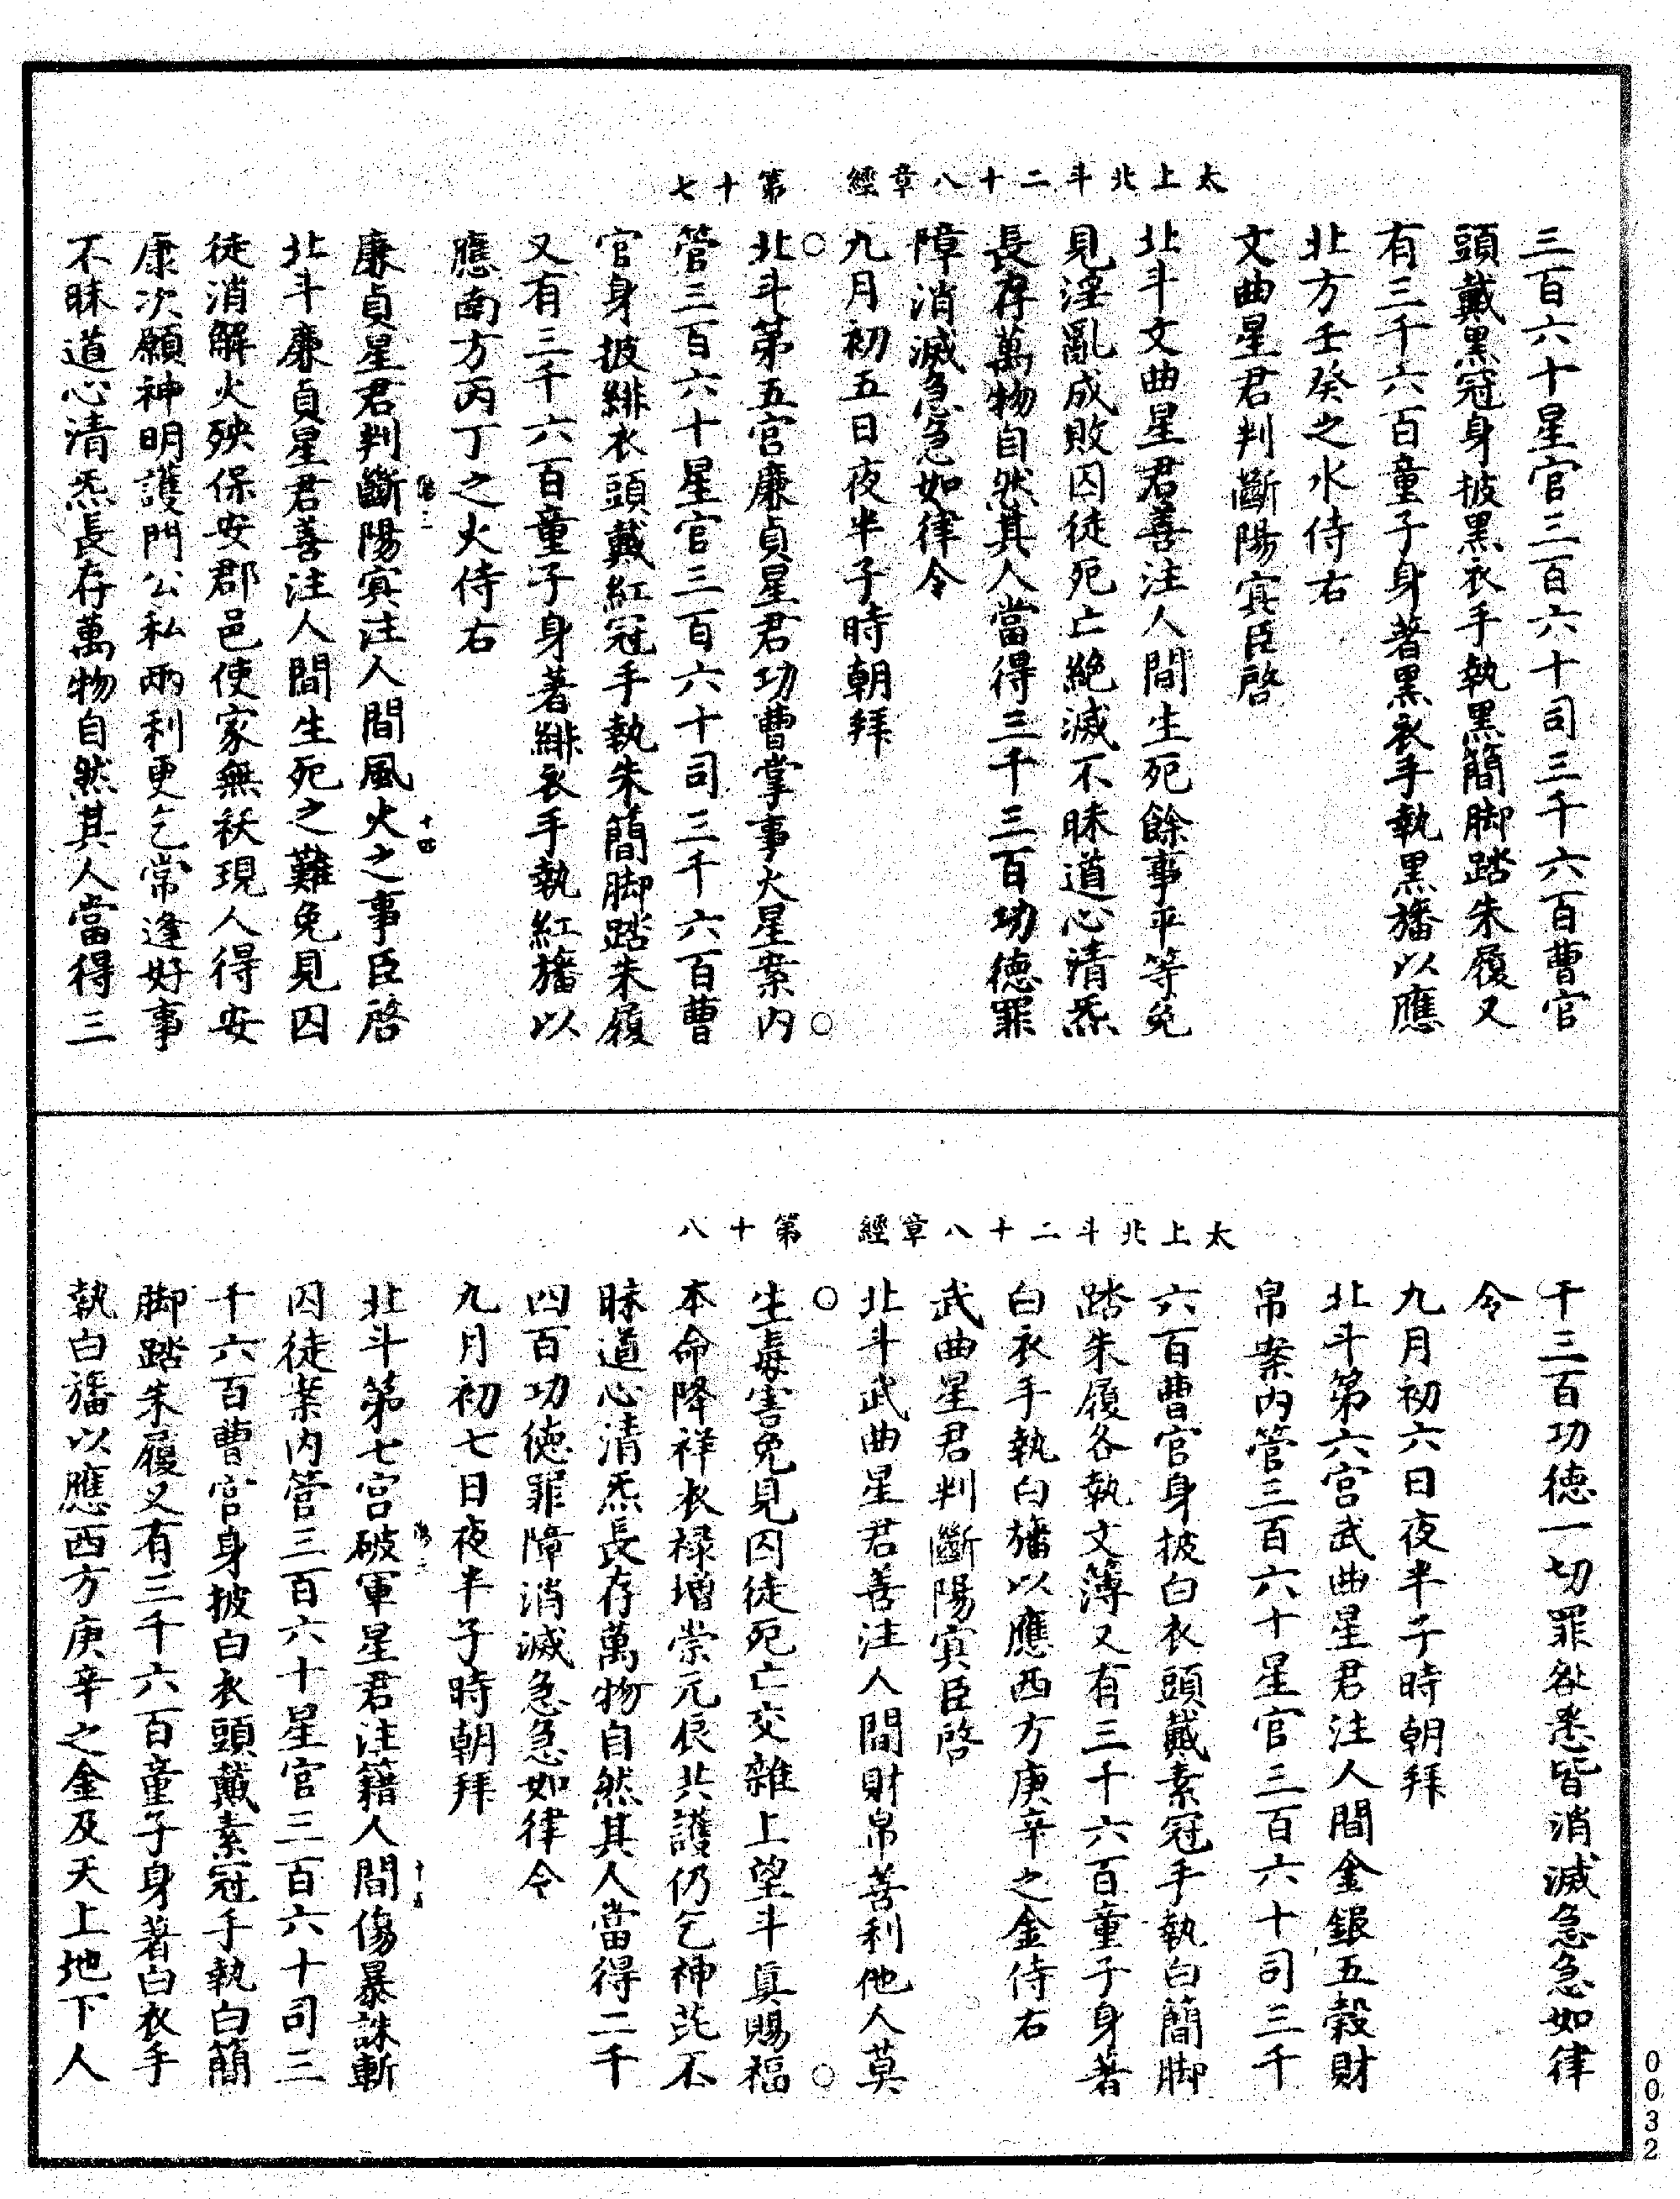 太上北斗二十八章經　第十七
三百六十星官三百六十司三千六百曹官
頭戴黑冠身披黑衣手執黑簡脚踏朱履又
有三千六百童子身著黑衣手執黑旛以應
北方壬癸之水侍右
文曲星君判斷陽㝠臣啓
北斗文曲星君善注人間生死餘事平等免
見淫亂成敗囚徒死亡絕滅不昧道心清炁
長存萬物自然其人當得三千三百功德罪
障消滅急急如律令
九月初五日夜半子時朝拜
○北斗第五宫廉貞星君功曹掌事火星案内○
管三百六十星官三百六十司三千六百曹
官身披緋衣頭戴紅冠手執朱簡脚踏朱履
又有三千六百童子身著緋衣手執紅旛以
應南方丙丁之火侍右
廉貞星君判斷陽㝠注人間風火之事臣啓
北斗廉貞星君善注人間生死之難免見囚
徒消解火殃保安郡邑使家無祅現人得安
康次願神明護門公私兩利更乞常逢好事
不昧道心清炁長存萬物自然其人當得三
太上北斗二十八章經　第十八
千三百功德一切罪咎悉皆消滅急急如律
令
九月初六日夜半子時朝拜
北斗第六宫武曲星君注人間金銀五穀財
帛案内管三百六十星官三百六十司三千
六百曹官身披白衣頭戴素冠手執白簡脚
踏朱履各執文簿又有三千六百童子身著
白衣手執白旛以應西方庚辛之金侍右
武曲星君判斷陽㝠臣啓
北斗武曲星君善注人間財帛善利他人莫
○生毒害免見囚徒死亡交雜上望斗真賜福○
本命降祥衣禄增崇元辰共護仍乞神茈不
昧道心清炁長存萬物自然其人當得二千
四百功德罪障消滅急急如律令
九月初七日夜半子時朝拜
北斗第七宫破軍星君注籍人間傷暴誅斬
囚徒案内管三百六十星官三百六十司三
千六百曹官身披白衣頭戴素冠手執白簡
脚踏朱履又有三千六百童子身著白衣手
執白旛以應西方庚辛之金及天上地下人
0032